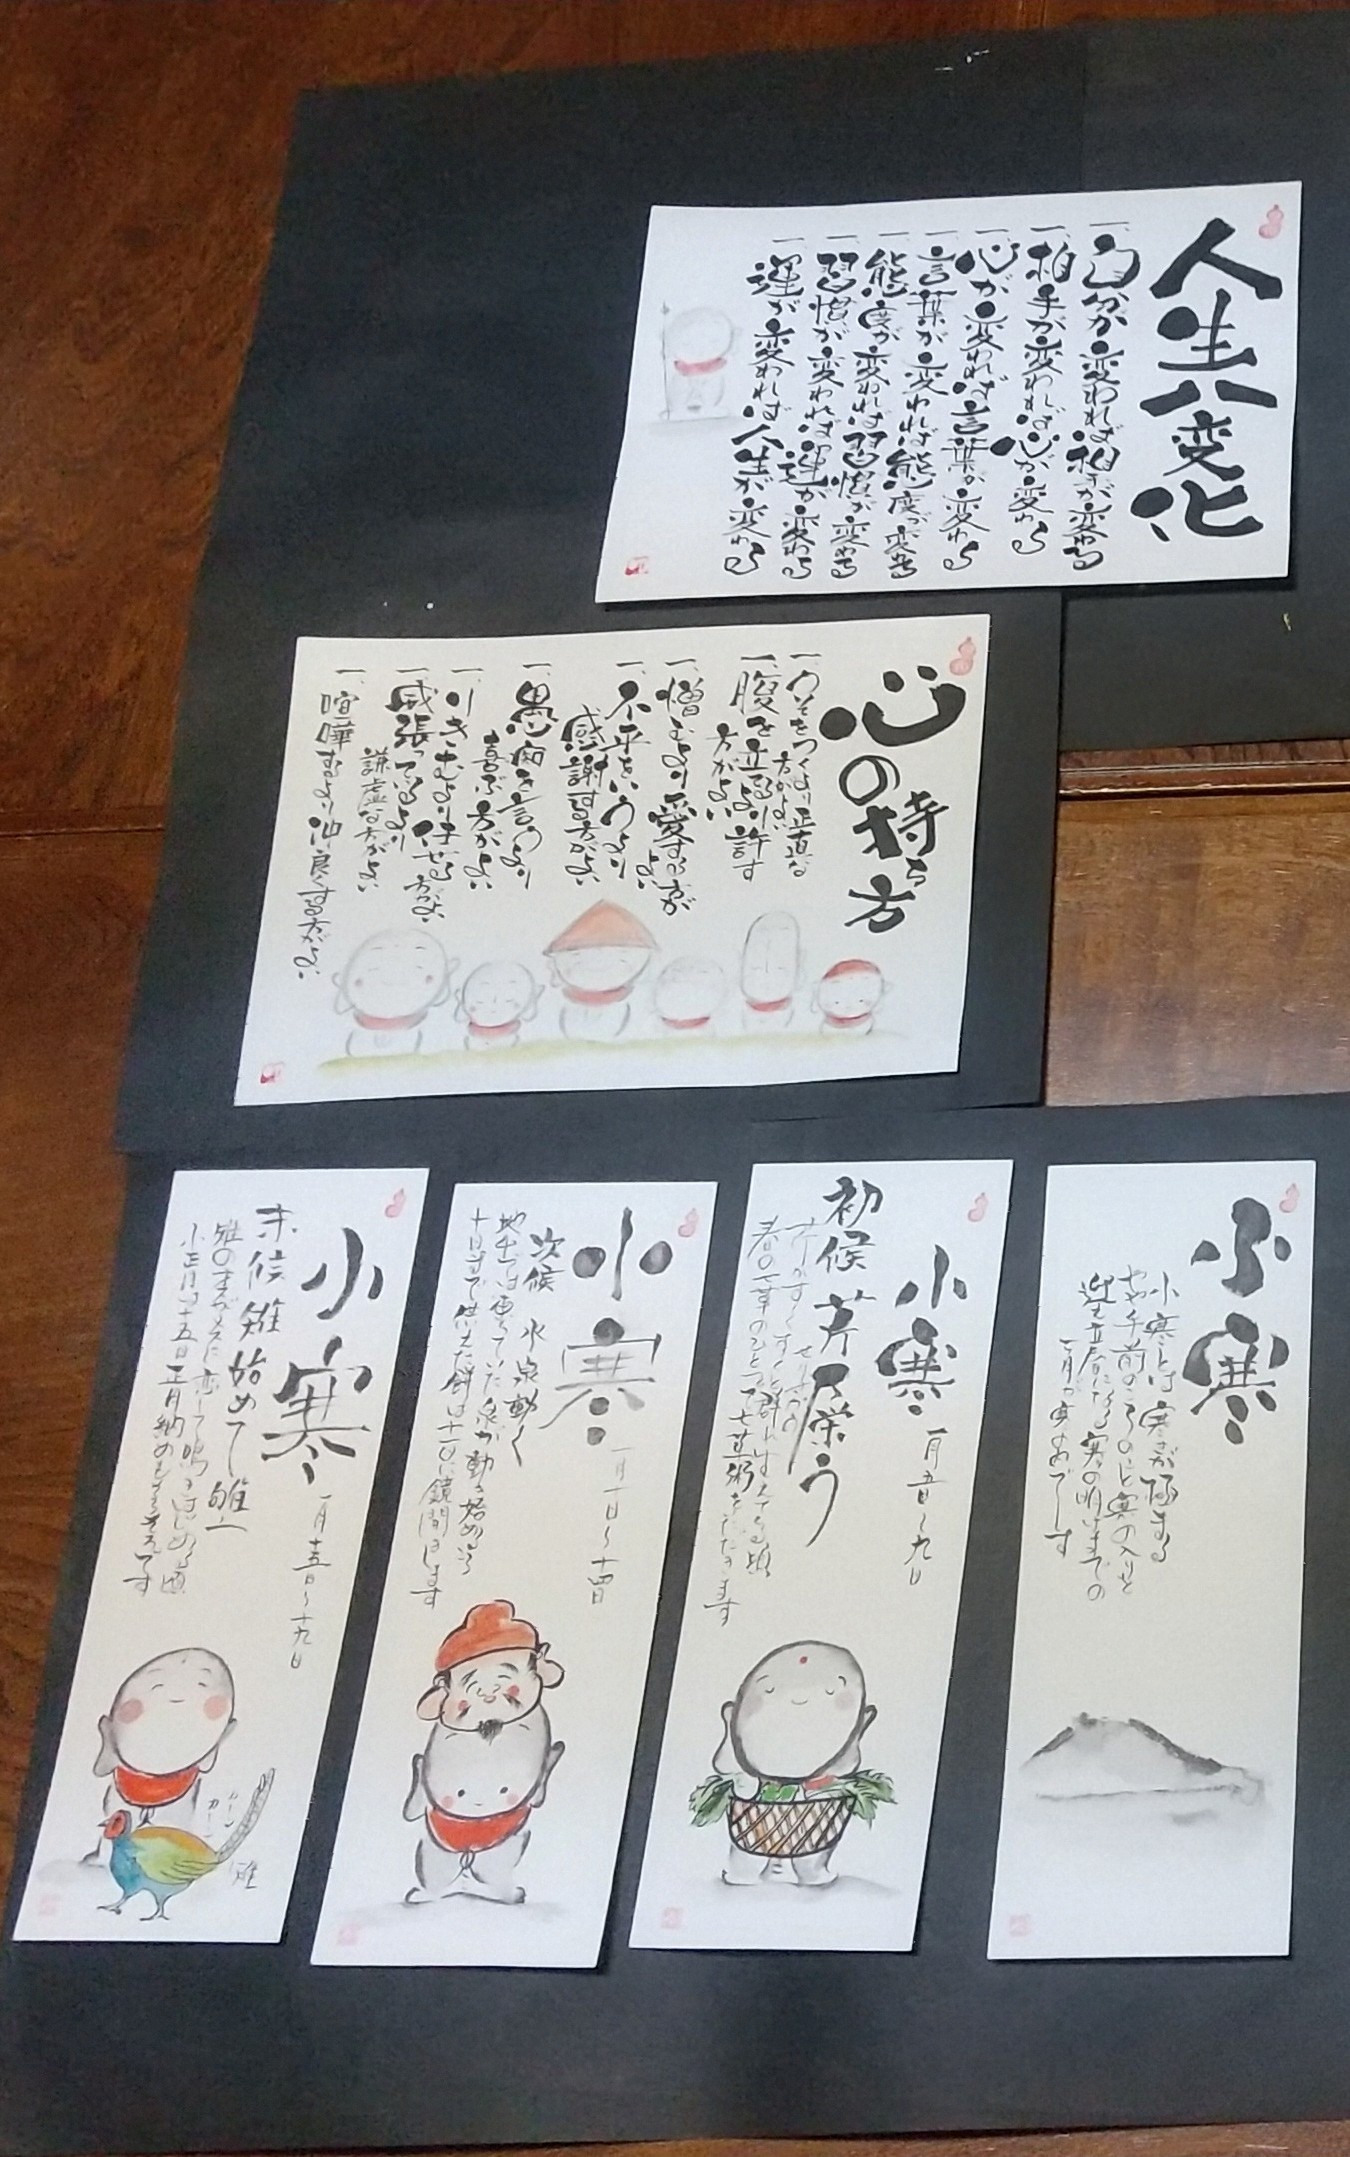 人生八変化
一、自分が変われば相手が変わる
一、相手が変われば心が変わる
一、心が変われば言葉が変わる
一、言葉が変われば態度が変わる
一、態度が変われば習慣が変わる
一、習慣が変われば運が変わる
一、運が変われば人生が変わる
心の持ち方
一、うそをつくより正直な
方がよい
一、腹を立るより許す
方がよい
一、憎むより愛する方が
よい
一、不平をいうより
感謝する方がよい
一、愚痴を言うより
喜ぶ方がよい
一、引きこむより任せる方がよい
一、威張っているより
謙虚な方がよい
一、喧嘩するより仲良くする方がよい
小寒
小寒とは寒さが極まる
やや手前のころのこと寒の入りと
迎え立春になる寒の明けまでの
一月が寒さです
小寒
一月五日〜九日
初候 芹乃栄う
芹がすくすくと群れ生えてくる頃
春の七草のひとつで七草粥をいただきます
小寒
一月十日〜十四日
次候 水泉動く
地中では凍っていた泉が動き始めるころ
十日まで供えた餅は十一日に鏡開きします
小寒
一月十五日〜十九日
末候 雉始めて雊
雉のオスがメスに恋して鳴きはじめる頃
小正月は十五日正月納めもするそうです
カーン
カーン
雉